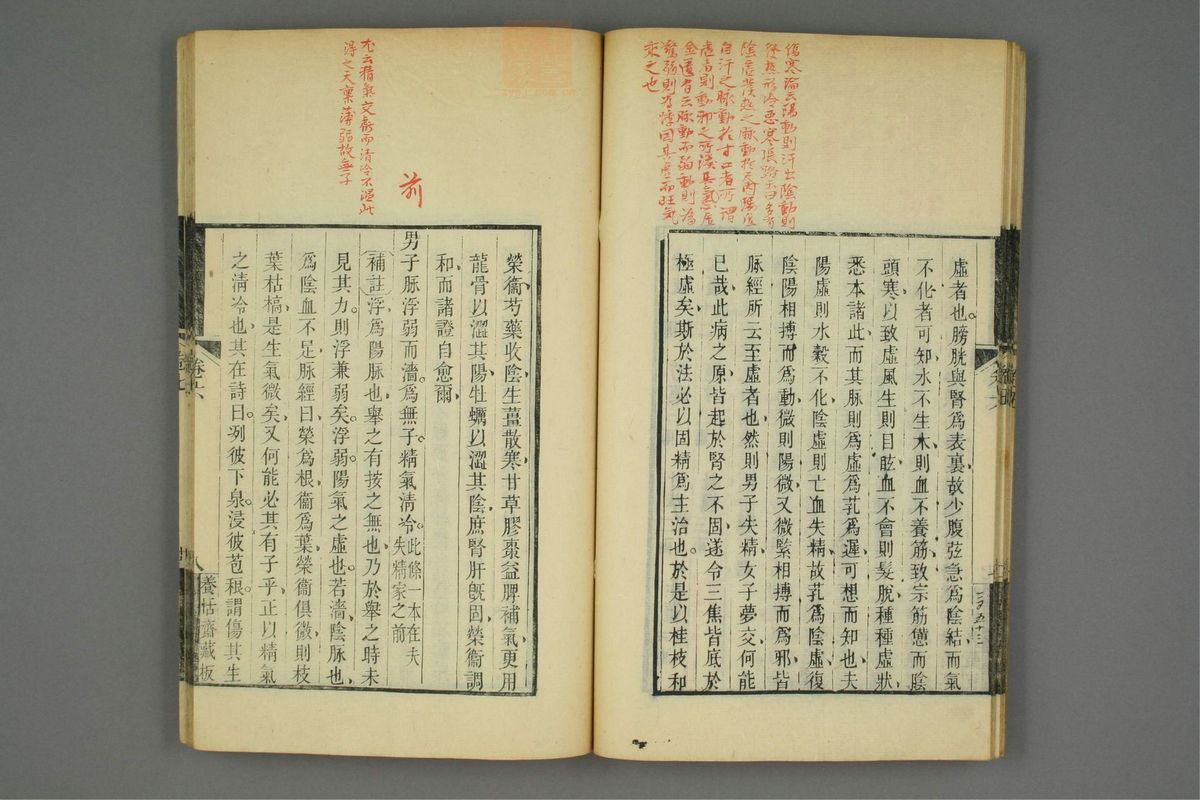 傷寒論云陽動則汗出陰動則
發熱形冷惡寒
陰虛發熱之脉動於尺內陽虛
自汗之脉動於寸口者所謂
金匱者云脉動而弱動則為
驚弱則為悸因其虛而旺氣
乘之也
虛者也膀胱與腎爲表裏故少腹弦急爲陰結而氣
不化者可知水不生木則血不養筋致宗筋憊而陰
頭寒以致虛風生則目眩血不會則髮脫種種虛狀
悉本諸此而其脉則爲虛爲芤爲遲可想而知也夫
陽虛則水穀不化陰虛則亡血失精故芤爲陰虛復
陰陽相搏而爲動微則陽微又微緊相搏而爲邪皆
脉經所云至虛者也然則男子失精女子夢交何能
已哉此病之原皆起於腎之不固遂令三焦皆底於
極虛矣斯於法必以固精爲主治也於是以桂枝和
尤云精氣交虧而清冷不溫此
得之天稟薄弱故無子
前
榮衞芍藥收陰生薑散寒甘草膠棗益脾補氣更用
龍骨以澀其陽牡蠣以澀其陰庶腎肝旣固榮衞調
和而諸證自愈爾
男子脉浮弱而濇爲無子精氣清冷此條一本在夫失精家之前
補註浮爲陽脉也舉之有按之無也乃於舉之時未
見其力則浮兼弱矣浮弱陽氣之虛也若濇陰脉也
爲陰血不足脉經曰榮爲根衞爲葉榮衞俱微則枝
葉枯槁是生氣微矣又何能必其有子乎正以精氣
之清冷也其在詩曰冽彼下泉浸彼苞稂謂傷其生
卷六
八
養恬齋藏板